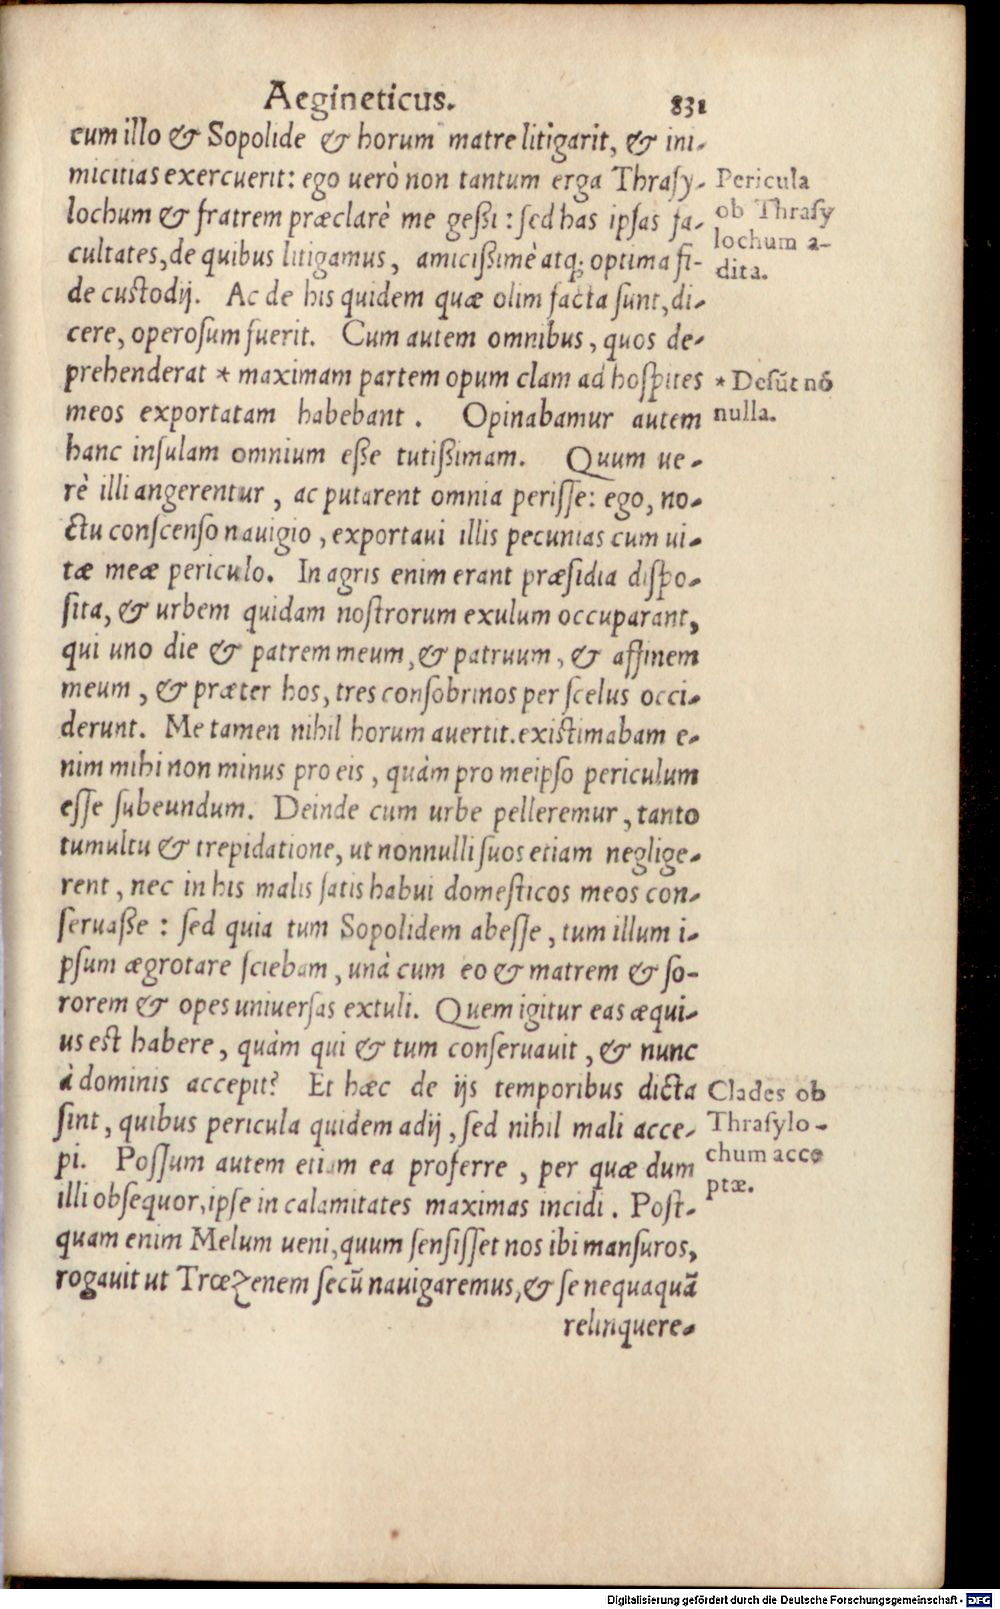 Aegineticus. 831
cum illo & Sopolide & horum matre litigarit, & ini-
micitias exercuerit: ego uerò non tantum erga Thraſy-
lochum & fratrem præclarè me geßi: ſed has ipſas fa-
cultates, de quibus litigamus, amicißimè atq; optima fi-
de custodij. Ac de his quidem quæ olim facta ſunt, di-
cere, operoſum fuerit. Cum autem omnibus, quos de-
prehenderat * maximam partem opum clam ad hoſpites
meos exportatam habebant. Opinabamur autem
hanc inſulam omnium eße tutißimam. Quum ue-
rè illi angerentur, ac putarent omnia periſſe: ego, no-
ctu conſcenſo nauigio, exportaui illis pecunias cum ui-
tæ meæ periculo. In agris enim erant præſidia diſpo-
ſita, & urbem quidam noſtrorum exulum occuparant,
qui uno die & patrem meum, & patruum, & affinem
meum, & præter hos, tres conſobrinos per ſcelus occi-
derunt. Me tamen nihil horum auertit. existimabam e-
nim mihi non minus pro eis, quàm pro meipſo periculum
eſſe ſubeundum. Deinde cum urbe pelleremur, tanto
tumultu & trepidatione, ut nonnulli ſuos etiam neglige-
rent, nec in his malis ſatis habui domeſticos meos con-
ſeruaße: ſed quia tum Sopolidem abeſſe, tum illum i-
pſum ægrotare ſciebam, unà cum eo & matrem & ſo-
rorem & opes uniuerſas extuli. Quem igitur eas æqui-
us est habere, quàm qui & tum conſeruauit, & nunc
à dominis accepit? Et hæc de ijs temporibus dicta
ſint, quibus pericula quidem adij, ſed nihil mali acce-
pi. Poſſum autem etiam ea proferre, per quæ dum
illi obſequor, ipſe in calamitates maximas incidi. Poſt-
quam enim Melum ueni, quum ſenſiſſet nos ibi manſuros,
rogauit ut Trœzenem ſecũ nauigaremus, & ſe nequaquã
relinquere-
Pericula
ob Thraſy
lochum a-
dita.
* Deſũt nõ
nulla.
Clades ob
Thraſylo-
chum acce
ptæ.
Digitalisierung gefördert durch die Deutsche Forschungsgemeinschaft - DFG